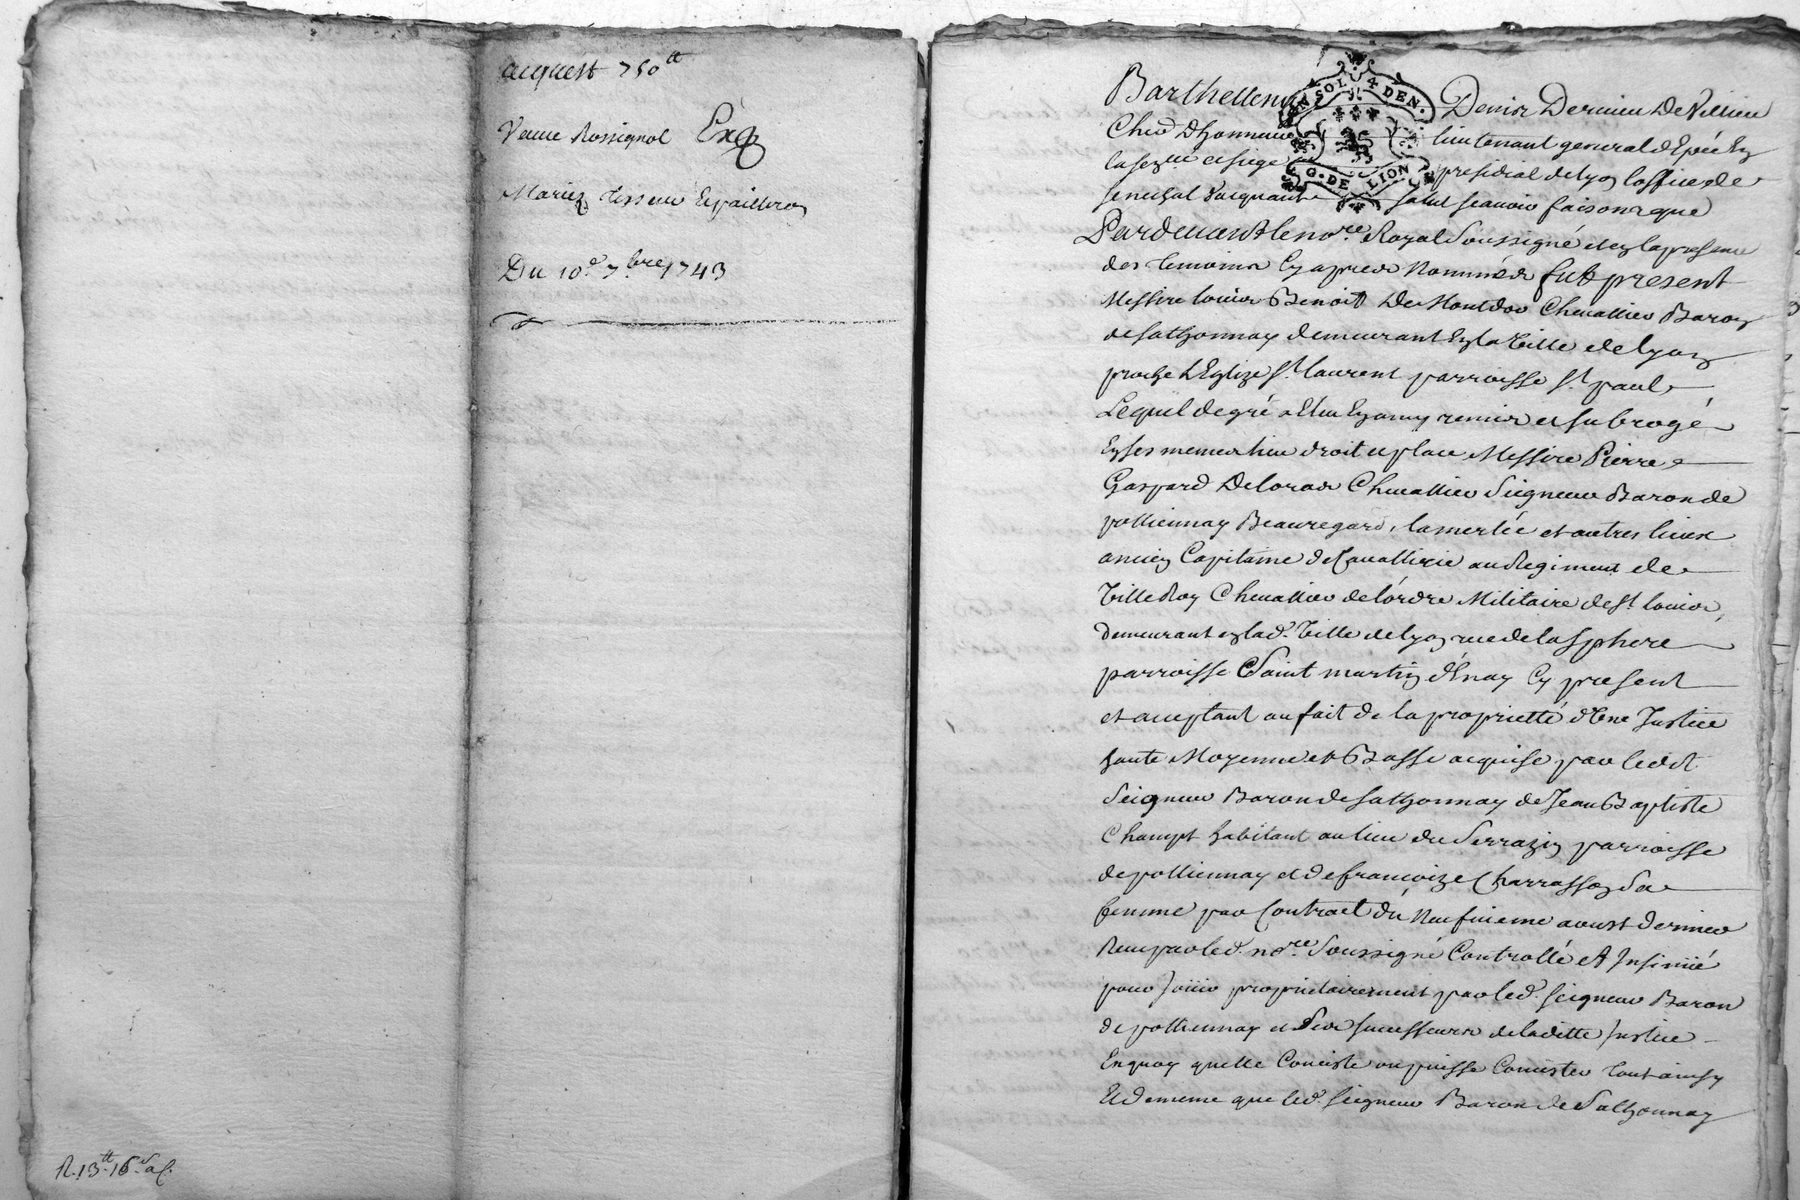 acquest 750ᵗᵗ
Veuve Rossignol Exp
Mariez
Du 10ᵉ 7ᵇʳᵉ 1743
R. 13ᵗᵗ 16ˢ
EN SOL 4 DEN.
G. DE LION
Barthellemy Denis Dervieu De Villieu
Cheʳ Dhonneur lieutenant general dEpée En
la senᶜᵉ et siege presidial de Lyon loffice de
senechal vacquant salut scavoir faisons que
Pardevant le noʳᵉ Royal Soussigné et en la presence
des temoins Cy apres Nommés fut present
Messire Louis Benoit De Montdor Chevallier Baron
de Sathonnay demeurant En la Ville de Lyon
proche LEglize Sᵗ Laurent parroisse Sᵗ paul
Lequel de gré a Et remis et subrogé
En ses memes lieu droit et place Messire Pierre
Gaspard Deloras Chevallier Seigneur Baron de
pollionnay Beauregard, lamerlée et autres lieux
ancien Capitaine de Cavallerie au Regiment de
VilleRoy Chevallier de l'ordre Militaire de Sᵗ Louis,
demeurant en lad. Ville de Lyon rue de la Sphere
parroisse Saint martin d'Enay Cy present
et acceptant au fait de la proprietté d'Une Justice
haute Moyenne et Basse acquise par ledit
Seigneur Baron de Sathonnay de Jean Baptiste
Champt habitant au lieu du Serrazin parroisse
de pollionnay et de francoize Charrasson Sa
femme par Contract du Neufvieme aoust dernier
Reçu par led. noʳᵉ Soussigné Controllé et Insinüé
pour Joüir proprietairement par led. seigneur Baron
de pollionnay et Ses successeurs de laditte Justice
En quoy quelle Conciste ou puisse Concister tout ainsy
Et de meme que led. seigneur Baron de Sathonnay